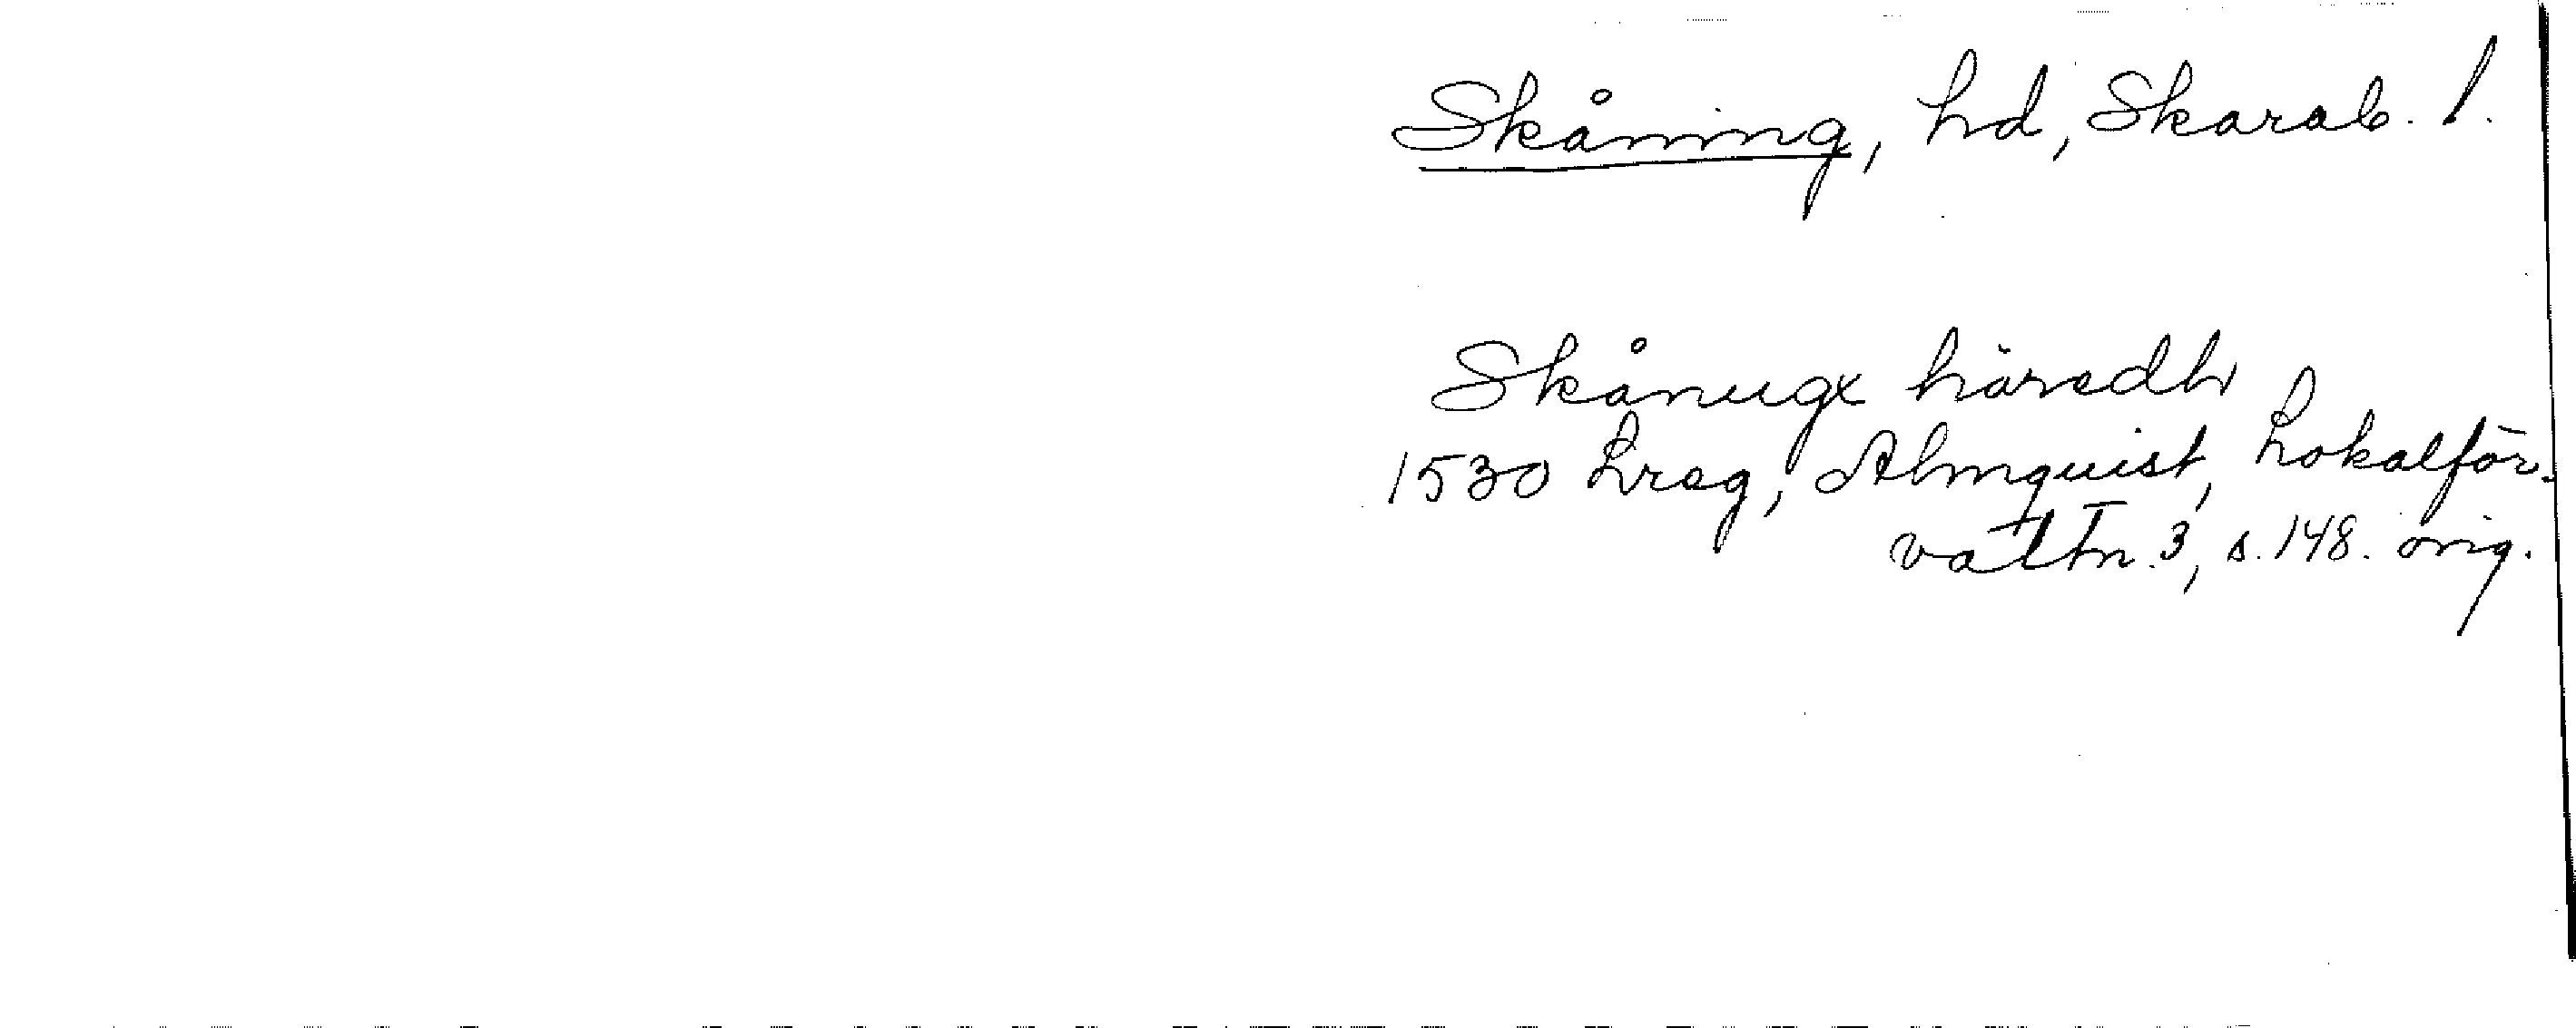 Skåning, hd, Skarab. l.
Skånugx häredh
1530 Lreg, Almquist, Lokalför-
valtn. 3, s. 148. orig.